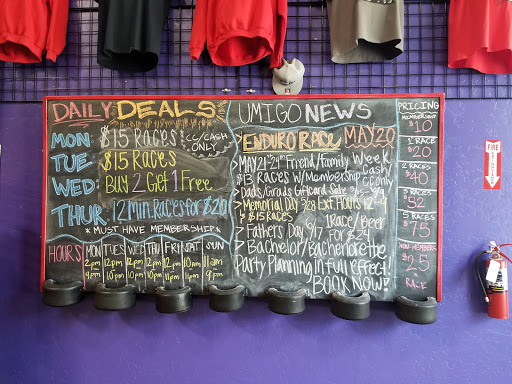 DAILY DEALS
MON: $15 Races CC/CASH ONLY
TUE: $15 Races
WED: Buy 2 Get 1 Free
THUR: 12 Min. Races for $20
* MUST HAVE MEMBERSHIP *
HOURS
MON TUES WED THU FRI SAT SUN
2pm 12pm 12pm 2pm 12pm 10am 11am
9pm 10pm 9pm
UMIGO NEWS
ENDURO RACE MAY 20
> MAY 21st-24th Friend/Family Week
$13 Races w/Membership Cash/CC only
> Dads/Grads Giftcard Sale
> Memorial Day 5/28 Ext Hours 12-9
$15 RACES
> Fathers Day 1 Race/Beer for $24
> Bachelor/Bachelorette
Party Planning in full effect!
BOOK NOW!
PRICING
MEMBERSHIP
$10
1 RACE
$20
2 RACES
$40
3 RACES
$52
5 RACES
$75
NON MEMBERS
$25
RACE
FIRE